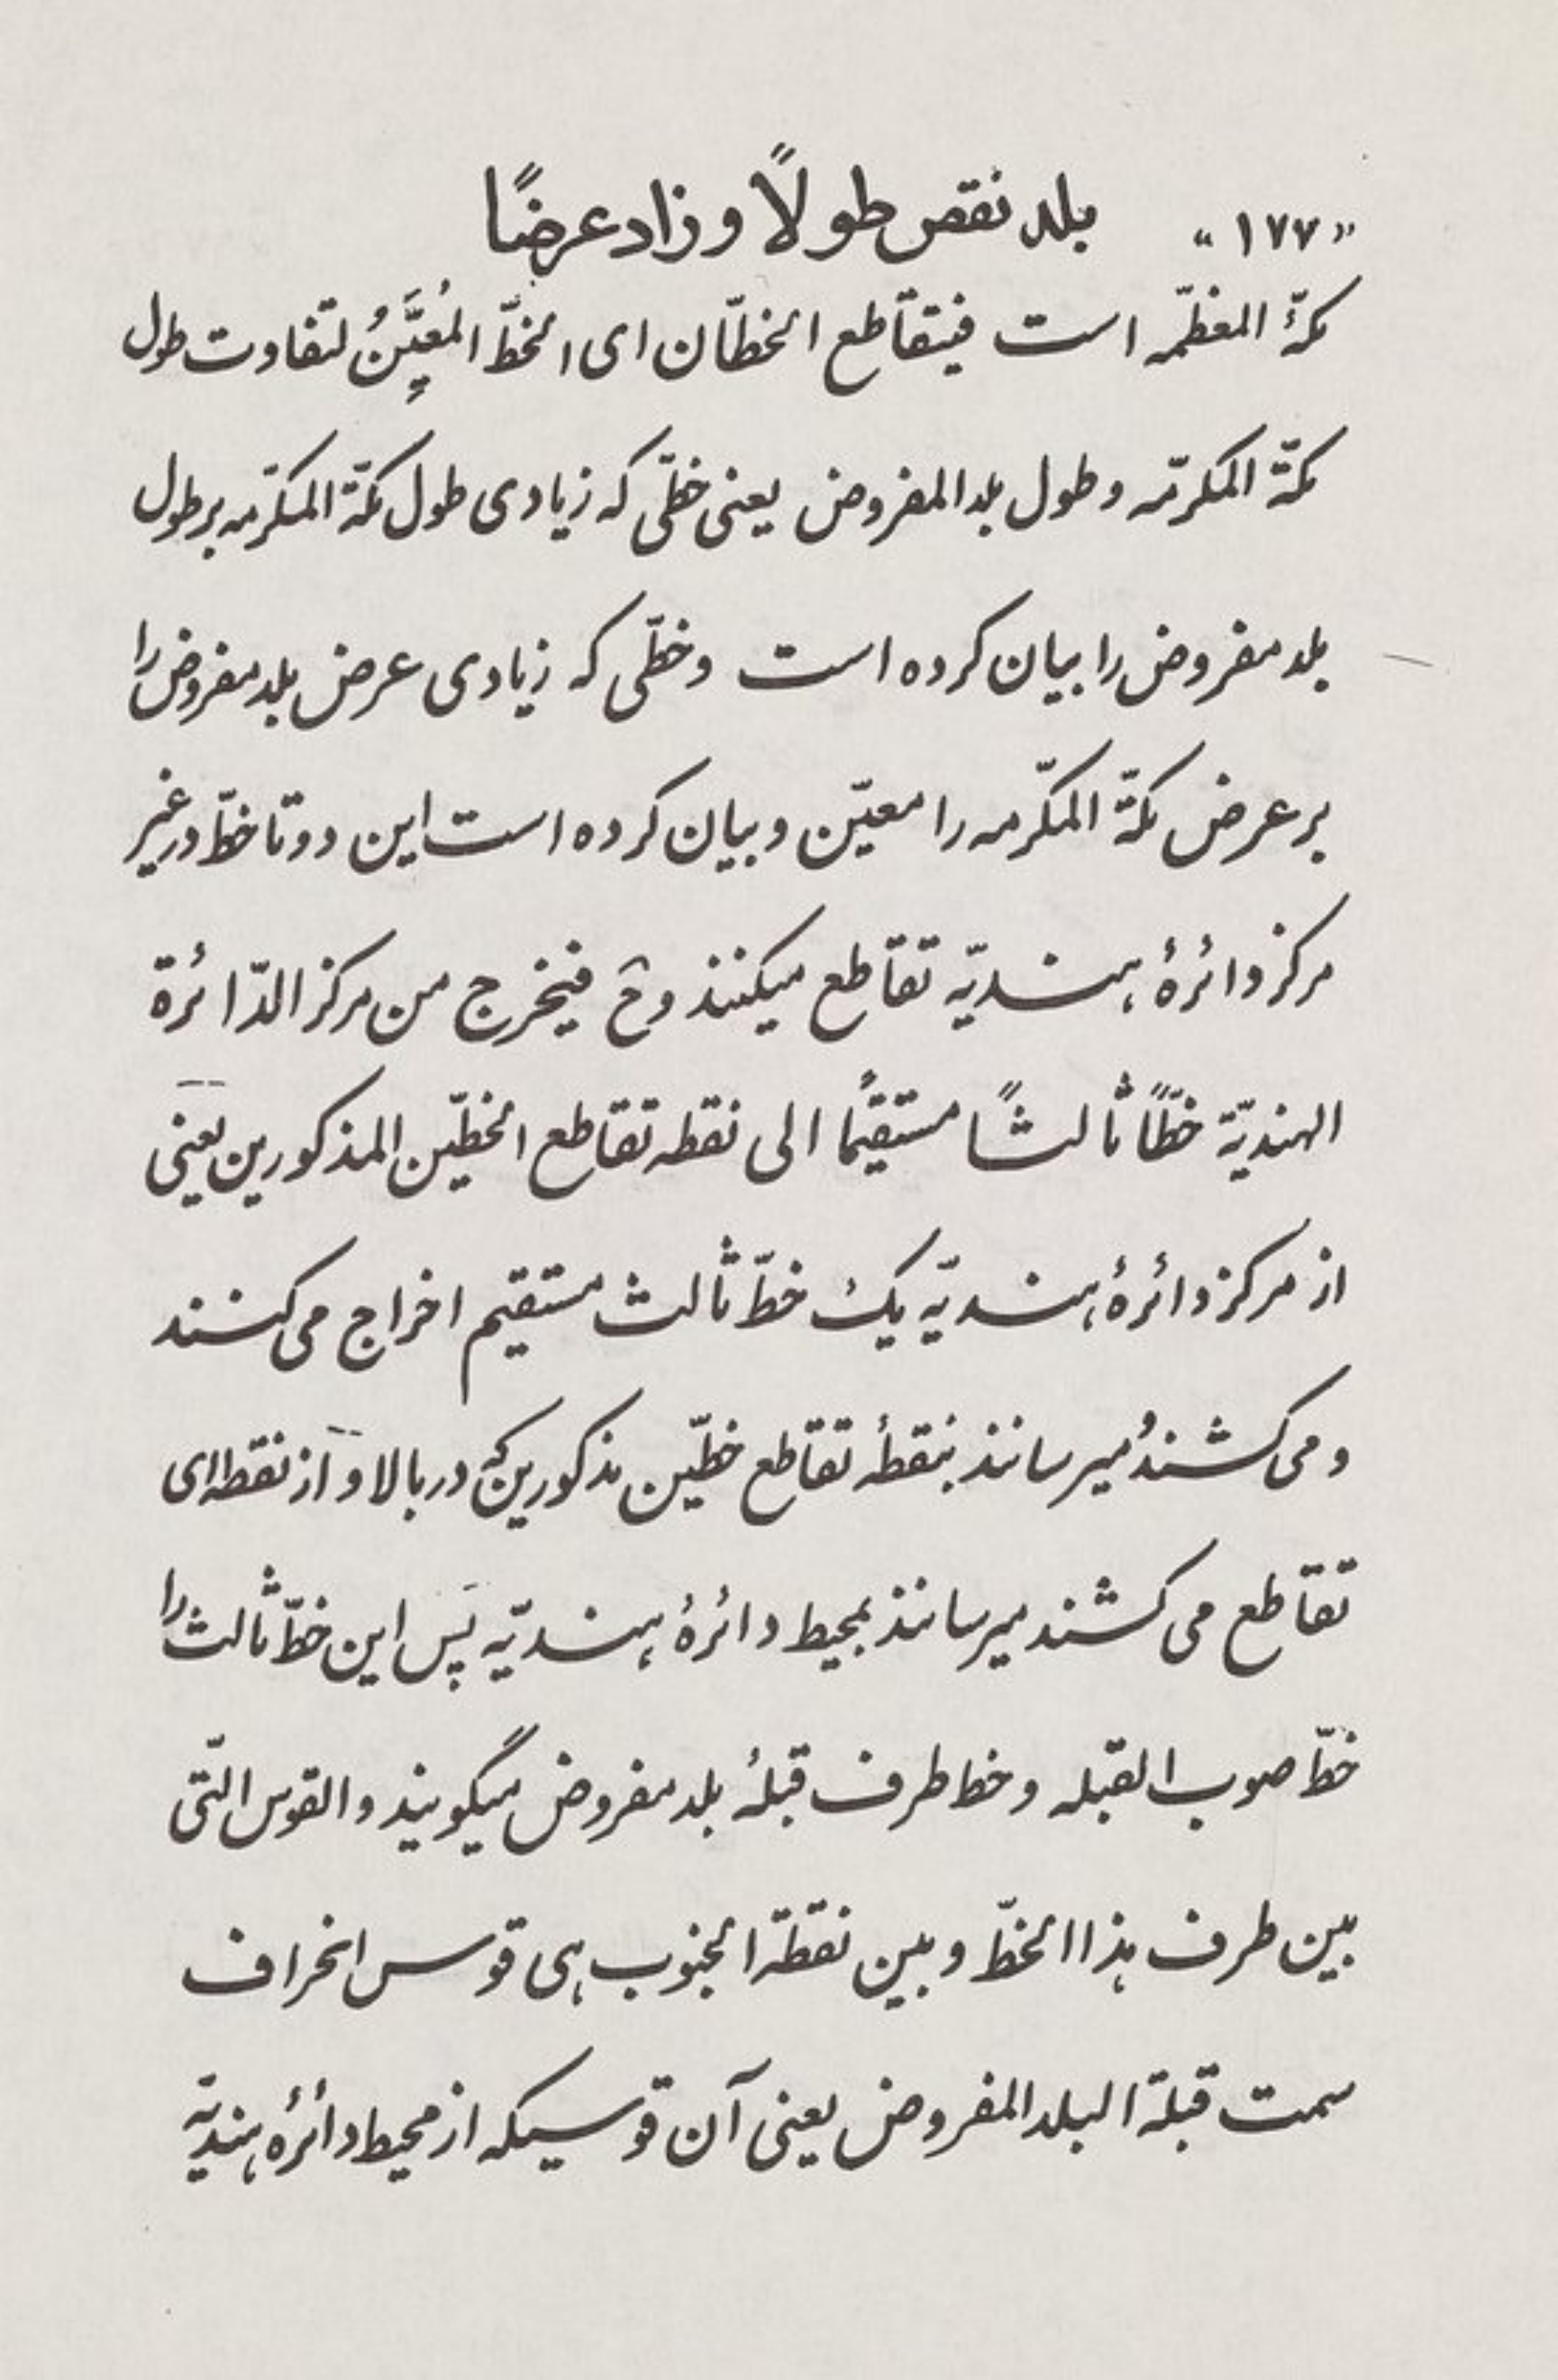 «١٧٧» بلد نقص طولاً و زاد عرضًا
مکّۀ المعظّمه است فیتقاطع الخطّان ای الخطّ المُعیَّنُ لتفاوت طول
مکّة المکرّمه و طول بلد المفروض یعنی خطّی که زیادی طول مکّة المکرّمه بر طول
بلد مفروض را بیان کرده است و خطّی که زیادی عرض بلد مفروض را
بر عرض مکّة المکرّمه را معیّن و بیان کرده است این دو تا خطّ در غیر
مرکز دائرۀ هندیّه تقاطع میکنند وح فیخرج من مرکز الدّائرة
الهندیّة خطّاً ثالثاً مستقیمًا الی نقطه تقاطع الخطّین المذکورین یعنی
از مرکز دائرۀ هندیّه یک خطّ ثالث مستقیم اخراج می کنند
و می کشند و میرسانند بنقطۀ تقاطع خطّین مذکورین که در بالا و از نقطه ای
تقاطع می کشند میرسانند بمحیط دائرۀ هندیّه پَس این خطّ ثالث را
خطّ صوب القبله و خط طرف قبلۀ بلد مفروض میگویند و القوس الّتی
بین طرف هذا الخطّ و بین نقطة الجنوب هی قوس انحراف
سمت قبلة البلد المفروض یعنی آن قوسیکه از محیط دائرۀ هندیّه